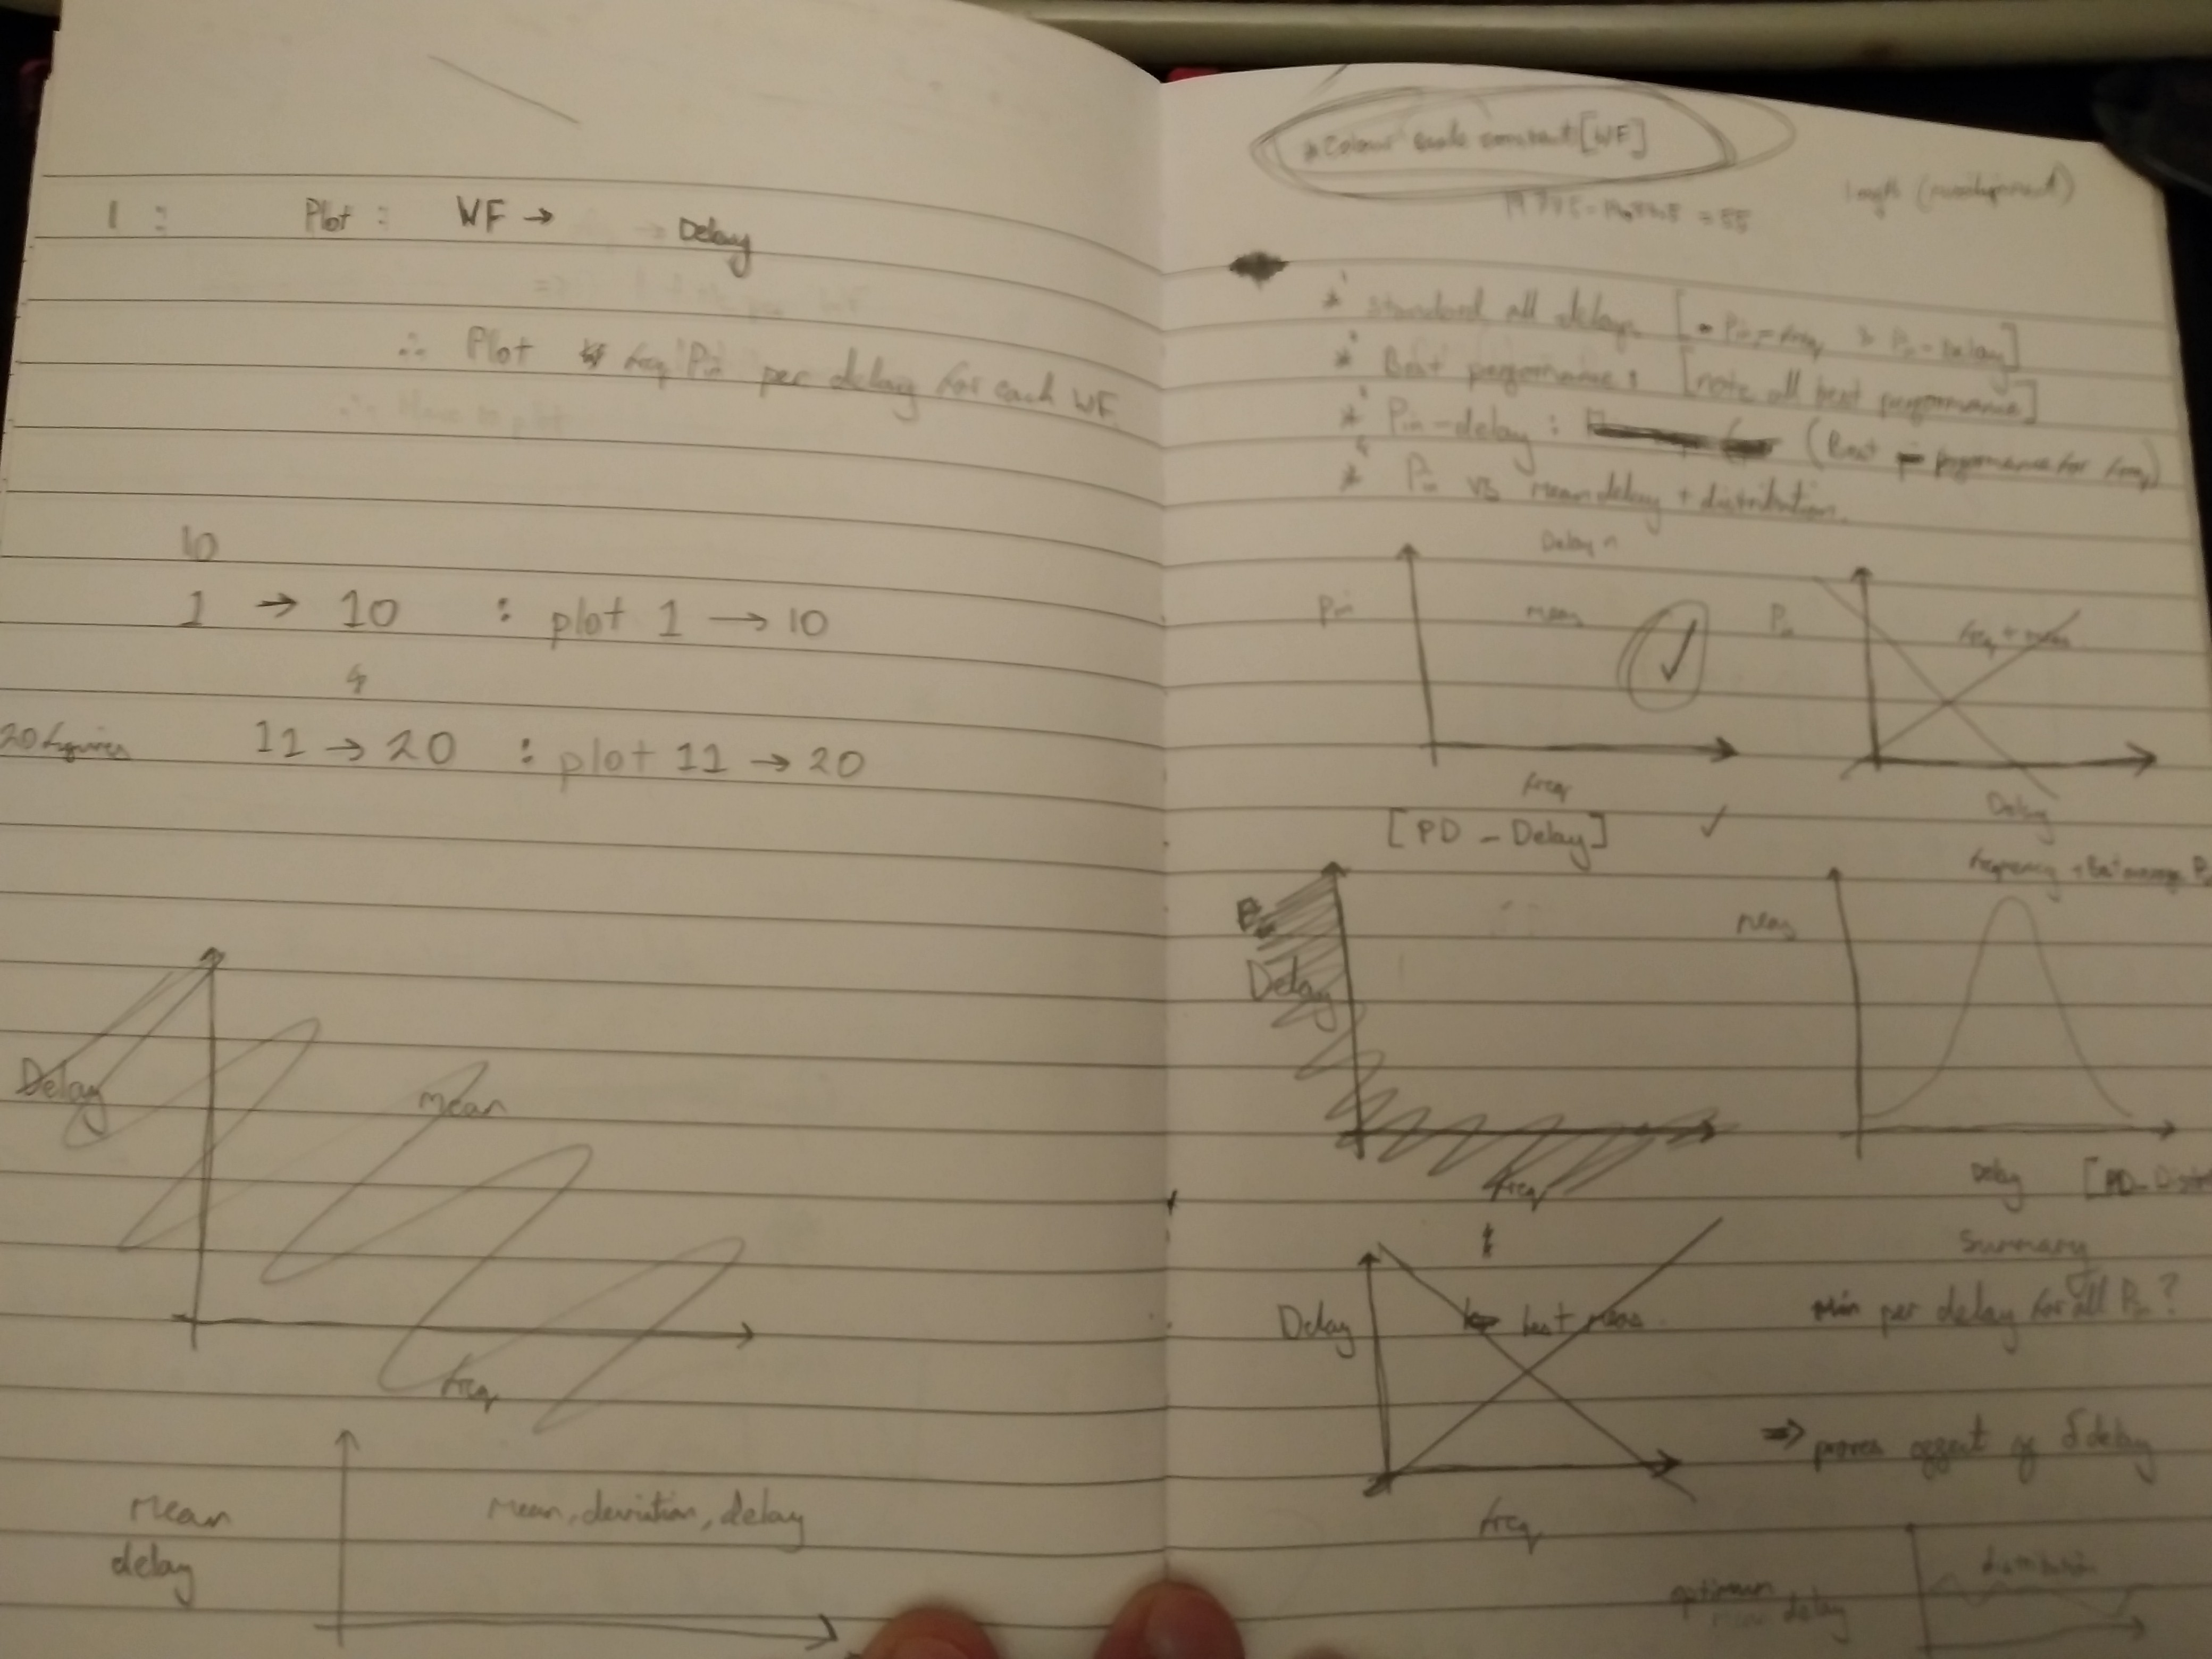 1 : Plot : WF → Delay
∴ Plot freq Pin per delay for each WF
10
1 → 10 : plot 1 → 10
4
20 figures 11 → 20 : plot 11 → 20
Delay
mean
freq
mean
delay
mean, deviation, delay
* Colour scale constant [WF]
length
* standard all delays
* Best performance : [note all best performance]
* Pin - delay : (Best performance for freq)
* Pin vs mean delay + distribution.
Delay n
Pin
mean
freq
Pin
freq + mean
Delay
[PD - Delay] ✓
Delay
freq
frequency + Best average
mean
Delay
Delay
best mean
freq
Summary
min per delay for all Pin ?
⇒ proves effect of δ delay
optimum
mean delay
distribution